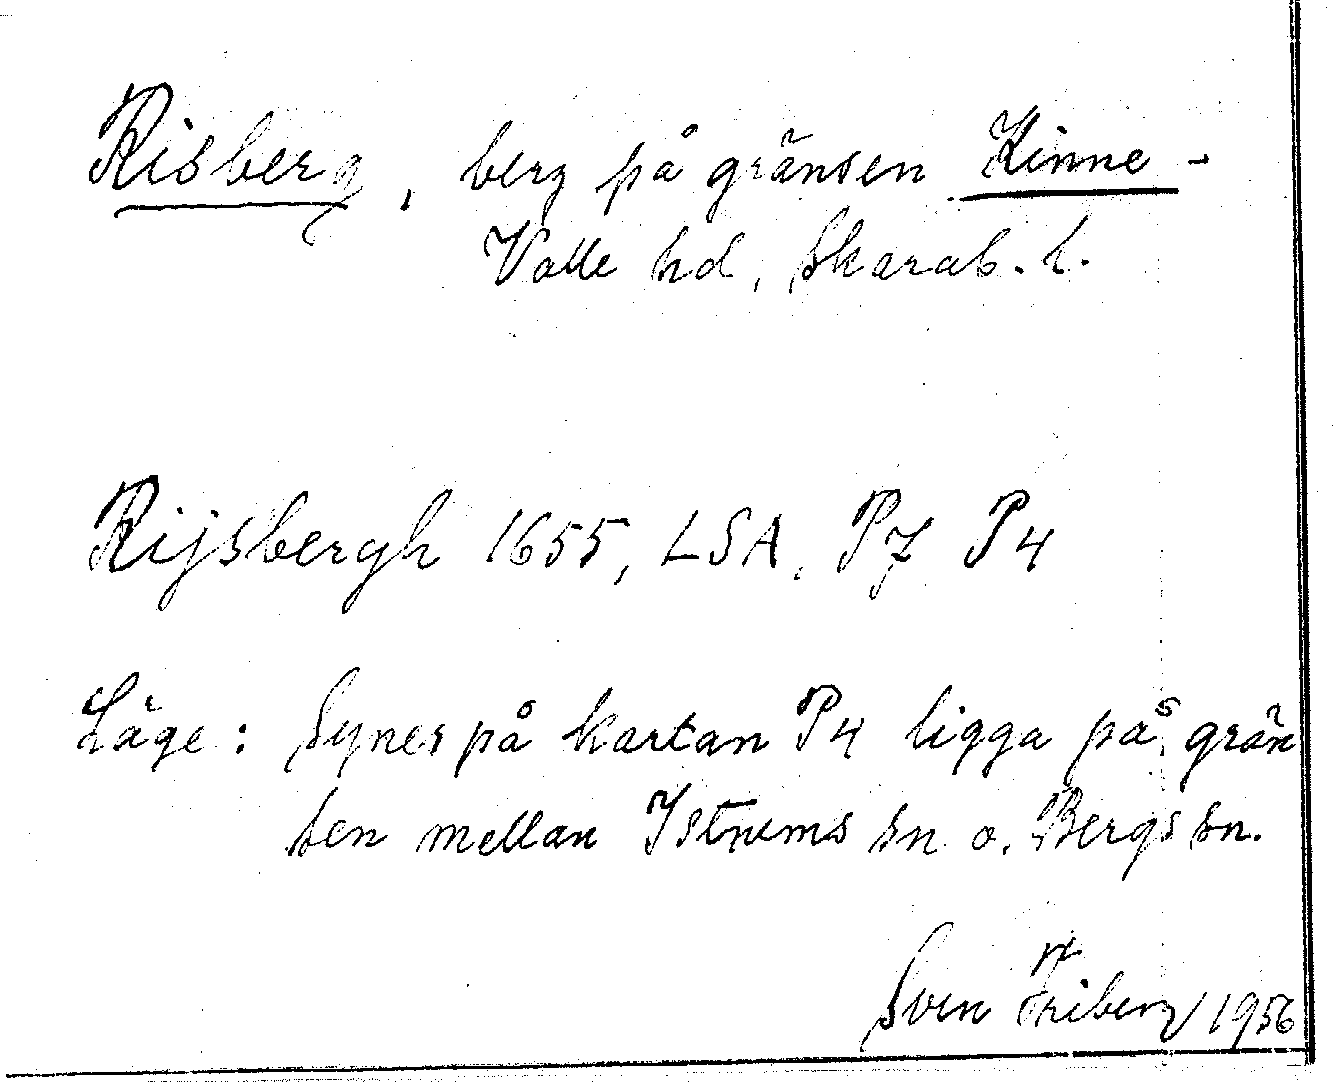 Risberg, berg på gränsen Kinne-
Valle hd, Skarab. l.
Rijsbergh 1655, LSA, P7 P4
Läge: Synes på kartan P4 ligga på grän
sen mellan Istrums sn o. Bergs sn.
Sven Friberg 1956